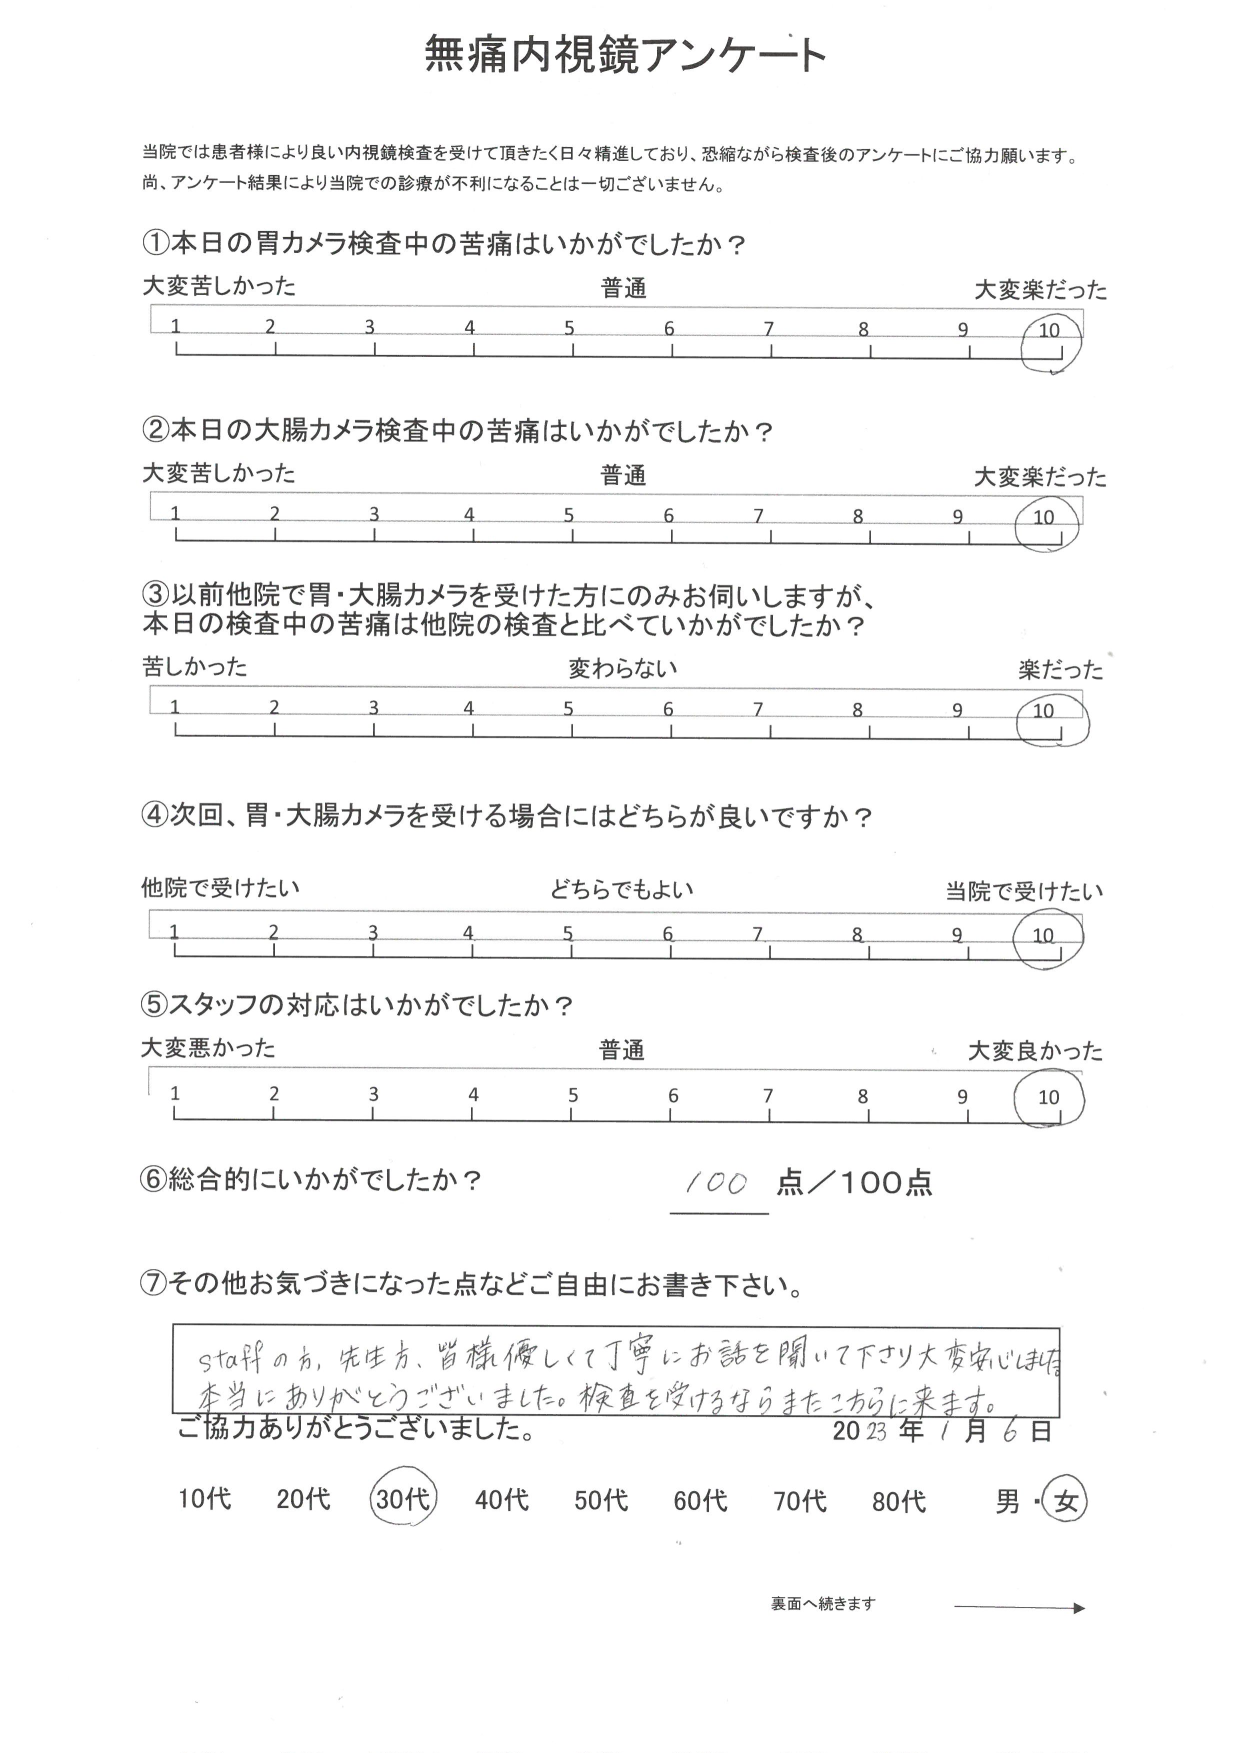 無痛内視鏡アンケート
当院では患者様により良い内視鏡検査を受けて頂きたく日々精進しており、恐縮ながら検査後のアンケートにご協力願います。
尚、アンケート結果により当院での診療が不利になることは一切ございません。
①本日の胃カメラ検査中の苦痛はいかがでしたか？
大変苦しかった 普通 大変楽だった
1 2 3 4 5 6 7 8 9 10
②本日の大腸カメラ検査中の苦痛はいかがでしたか？
大変苦しかった 普通 大変楽だった
1 2 3 4 5 6 7 8 9 10
③以前他院で胃・大腸カメラを受けた方にのみお伺いしますが、
本日の検査中の苦痛は他院の検査と比べていかがでしたか？
苦しかった 変わらない 楽だった
1 2 3 4 5 6 7 8 9 10
④次回、胃・大腸カメラを受ける場合にはどちらが良いですか？
他院で受けたい どちらでもよい 当院で受けたい
1 2 3 4 5 6 7 8 9 10
⑤スタッフの対応はいかがでしたか？
大変悪かった 普通 大変良かった
1 2 3 4 5 6 7 8 9 10
⑥総合的にいかがでしたか？ 100 点／100点
⑦その他お気づきになった点などご自由にお書き下さい。
staffの方,先生方、皆様優しくて丁寧にお話を聞いて下さり大変安心しました
本当にありがとうございました。検査を受けるならまたこちらに来ます。
ご協力ありがとうございました。 2023年1月6日
10代 20代 30代 40代 50代 60代 70代 80代 男・女
裏面へ続きます